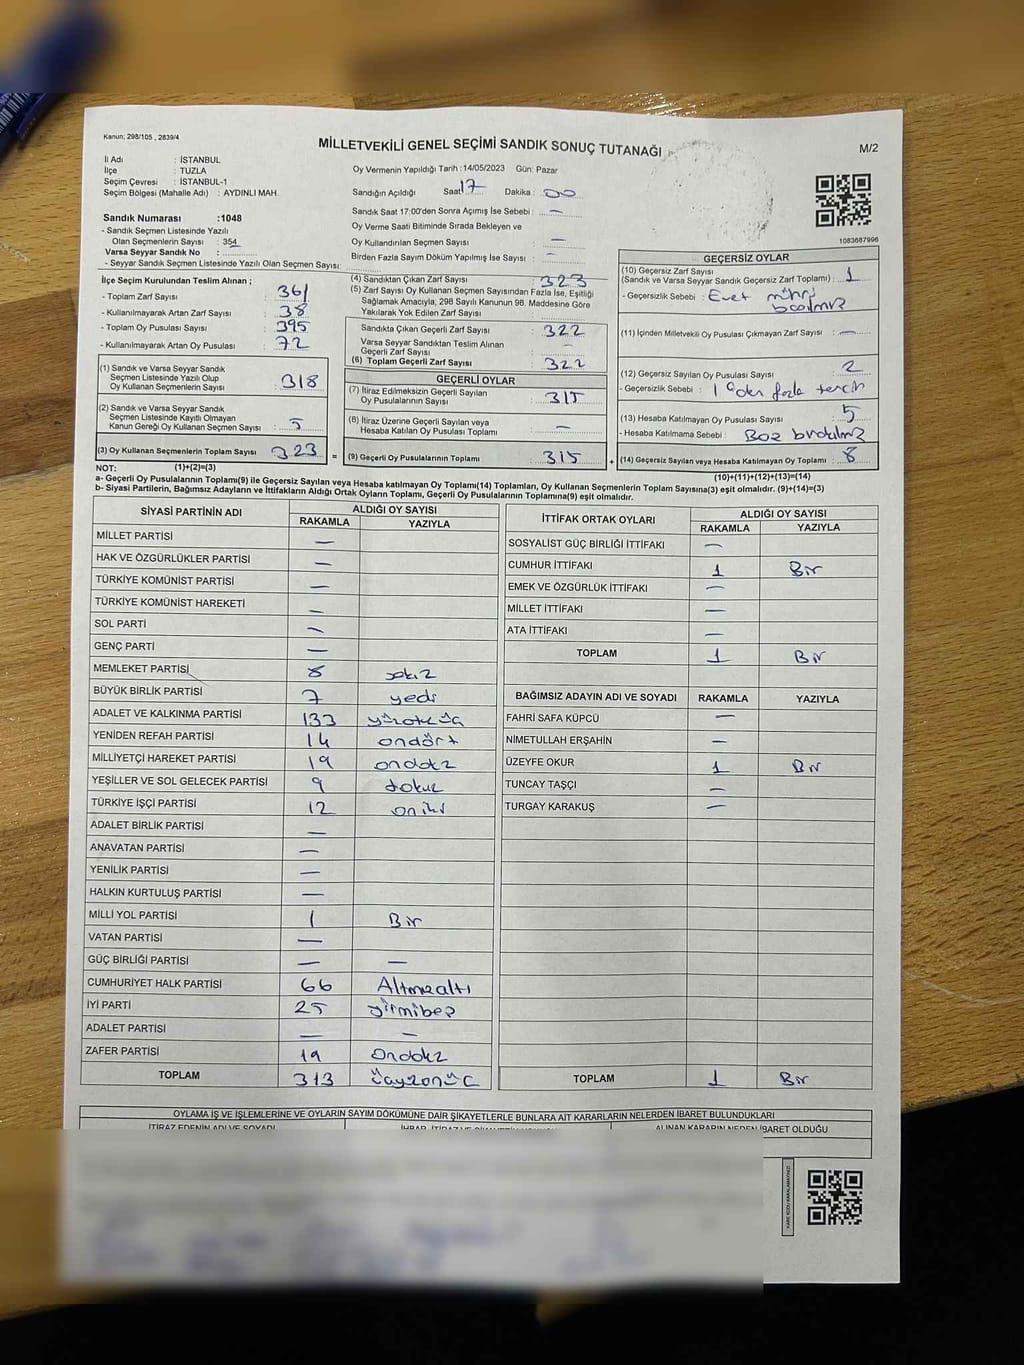 Kanun; 298/105 , 2839/4
MİLLETVEKİLİ GENEL SEÇİMİ SANDIK SONUÇ TUTANAĞI
M/2
İl Adı : İSTANBUL
İlçe : TUZLA
Seçim Çevresi : İSTANBUL-1
Seçim Bölgesi (Mahalle Adı) : AYDINLI MAH.
Oy Vermenin Yapıldığı Tarih : 14/05/2023 Gün: Pazar
Sandığın Açıldığı Saat: 17 Dakika : 00
Sandık Saat 17:00'den Sonra Açımış İse Sebebi : —
Oy Verme Saati Bitiminde Sırada Bekleyen ve
Oy Kullandırılan Seçmen Sayısı : —
Birden Fazla Sayım Döküm Yapılmış İse Sayısı : —
Sandık Numarası :1048
- Sandık Seçmen Listesinde Yazılı
Olan Seçmenlerin Sayısı : 354
Varsa Seyyar Sandık No :
- Seyyar Sandık Seçmen Listesinde Yazılı Olan Seçmen Sayısı:
1083687996
İlçe Seçim Kurulundan Teslim Alınan ;
- Toplam Zarf Sayısı : 361
- Kullanılmayarak Artan Zarf Sayısı : 38
- Toplam Oy Pusulası Sayısı : 395
- Kullanılmayarak Artan Oy Pusulası : 72
(1) Sandık ve Varsa Seyyar Sandık
Seçmen Listesinde Yazılı Olup
Oy Kullanan Seçmenlerin Sayısı : 318
(2) Sandık ve Varsa Seyyar Sandık
Seçmen Listesinde Kayıtlı Olmayan
Kanun Gereği Oy Kullanan Seçmen Sayısı : 5
(3) Oy Kullanan Seçmenlerin Toplam Sayısı : 323 =
(4) Sandıktan Çıkan Zarf Sayısı : 323
(5) Zarf Sayısı Oy Kullanan Seçmen Sayısından Fazla İse, Eşitliği
Sağlamak Amacıyla, 298 Sayılı Kanunun 98. Maddesine Göre
Yakılarak Yok Edilen Zarf Sayısı :
Sandıkta Çıkan Geçerli Zarf Sayısı : 322
Varsa Seyyar Sandıktan Teslim Alınan
Geçerli Zarf Sayısı : —
(6) Toplam Geçerli Zarf Sayısı : 322
GEÇERLİ OYLAR
(7) İtiraz Edilmeksizin Geçerli Sayılan
Oy Pusulalarının Sayısı : 315
(8) İtiraz Üzerine Geçerli Sayılan veya
Hesaba Katılan Oy Pusulası Toplamı : —
(9) Geçerli Oy Pusulalarının Toplamı : 315 +
GEÇERSİZ OYLAR
(10) Geçersiz Zarf Sayısı
(Sandık ve Varsa Seyyar Sandık Geçersiz Zarf Toplamı) : 1
- Geçersizlik Sebebi : Evet mührü
(11) İçinden Milletvekili Oy Pusulası Çıkmayan Zarf Sayısı : —
(12) Geçersiz Sayılan Oy Pusulası Sayısı : 2
- Geçersizlik Sebebi : 1'den fazla tercih
(13) Hesaba Katılmayan Oy Pusulası Sayısı : 5
- Hesaba Katılmama Sebebi :
(14) Geçersiz Sayılan veya Hesaba Katılmayan Oy Toplamı : 8
NOT: (1)+(2)=(3) (10)+(11)+(12)+(13)=(14)
a- Geçerli Oy Pusulalarının Toplamı(9) ile Geçersiz Sayılan veya Hesaba katılmayan Oy Toplamı(14) Toplamları, Oy Kullanan Seçmenlerin Toplam Sayısına(3) eşit olmalıdır. (9)+(14)=(3)
b- Siyasi Partilerin, Bağımsız Adayların ve İttifakların Aldığı Ortak Oyların Toplamı, Geçerli Oy Pusulalarının Toplamına(9) eşit olmalıdır.
SİYASİ PARTİNİN ADI ALDIĞI OY SAYISI
RAKAMLA YAZIYLA
MİLLET PARTİSİ —
HAK VE ÖZGÜRLÜKLER PARTİSİ —
TÜRKİYE KOMÜNİST PARTİSİ —
TÜRKİYE KOMÜNİST HAREKETİ —
SOL PARTİ —
GENÇ PARTİ —
MEMLEKET PARTİSİ 8 sekiz
BÜYÜK BİRLİK PARTİSİ 7 yedi
ADALET VE KALKINMA PARTİSİ 133
YENİDEN REFAH PARTİSİ 14 ondört
MİLLİYETÇİ HAREKET PARTİSİ 19 ondokz
YEŞİLLER VE SOL GELECEK PARTİSİ 9 dokuz
TÜRKİYE İŞÇİ PARTİSİ 12 oniki
ADALET BİRLİK PARTİSİ —
ANAVATAN PARTİSİ —
YENİLİK PARTİSİ —
HALKIN KURTULUŞ PARTİSİ —
MİLLİ YOL PARTİSİ 1 Bir
VATAN PARTİSİ —
GÜÇ BİRLİĞİ PARTİSİ — —
CUMHURİYET HALK PARTİSİ 66 Altmışaltı
İYİ PARTİ 25 yirmibeş
ADALET PARTİSİ — —
ZAFER PARTİSİ 19 Ondokz
TOPLAM 313
İTTİFAK ORTAK OYLARI ALDIĞI OY SAYISI
RAKAMLA YAZIYLA
SOSYALİST GÜÇ BİRLİĞİ İTTİFAKI —
CUMHUR İTTİFAKI 1 Bir
EMEK VE ÖZGÜRLÜK İTTİFAKI —
MİLLET İTTİFAKI —
ATA İTTİFAKI —
TOPLAM 1 Bir
BAĞIMSIZ ADAYIN ADI VE SOYADI RAKAMLA YAZIYLA
FAHRİ SAFA KÜPCÜ —
NİMETULLAH ERŞAHİN —
ÜZEYFE OKUR 1 Bir
TUNCAY TAŞÇI —
TURGAY KARAKUŞ —
TOPLAM 1 Bir
OYLAMA İŞ VE İŞLEMLERİNE VE OYLARIN SAYIM DÖKÜMÜNE DAİR ŞİKAYETLERLE BUNLARA AİT KARARLARIN NELERDEN İBARET BULUNDUKLARI
İTİRAZ EDENİN ADI VE SOYADI
ALINAN KARARIN NEDEN İBARET OLDUĞU
KARE KODU KARALAMAYINIZ!